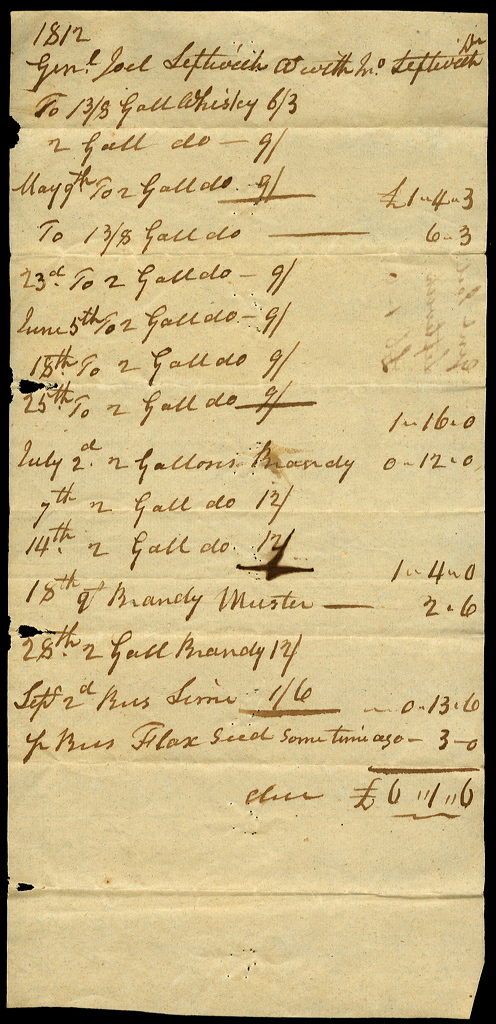 1812
Genl. Joel Leftwich A with Jno Leftwich Dr
To 13/8 Gall Whisky 6/3
2 Gall do - 9/
May 9th To 2 Gall do 9/ £1 - 4 - 3
To 13/8 Gall do 6 - 3
23d. To 2 Gall do - 9/
June 5th To 2 Gall do - 9/
18th To 2 Gall do 9/
25th To 2 Gall do 9/ 1 - 16 - 0
July 2d. 2 Gallons Brandy 0 - 12 - 0
7th 2 Gall do 12/
14th. 2 Gall do 12/ 1 - 4 - 0
18th qt Brandy Muster 2 - 6
28th. 2 Gall Brandy 12/
Sept 2d Bus Lime 1/6 0 - 13 - 6
Bus Flax Seed Sometime ago - 3 - 0
due £6 " 1 " 6